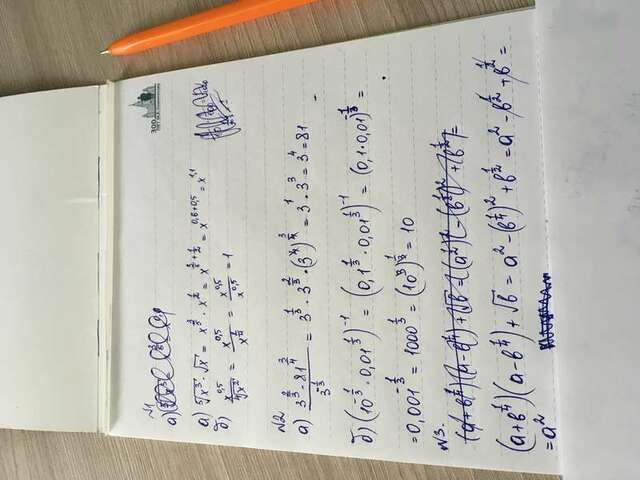 300
№1
а)
а) ⁵√x³ · √x = x^(3/5) · x^(1/2) = x^(3/5 + 1/2) = x^(0,6+0,5) = x^(1,1)
б) x^(0,5) / = x^(0,5) / = x^(0,5) / x^(0,5) = 1
№2
а) = 3^(1/3) · 3^(2/3) · = 3^1 · 3^3 = 3^4 = 81
б) (10^(-1/3) · 0,01^(1/3))^(-1) = (0,1^(1/3) · 0,01^(1/3))^(-1) = (0,1 · 0,01)^(-1/3) =
= 0,001^(-1/3) = 1000^(1/3) = (10^3)^(1/3) = 10
№3.
(a+b^(1/4))(a-b^(1/4)) + √b = a² - (b^(1/4))² + b^(1/2) = a² - b^(1/2) + b^(1/2) =
= a²